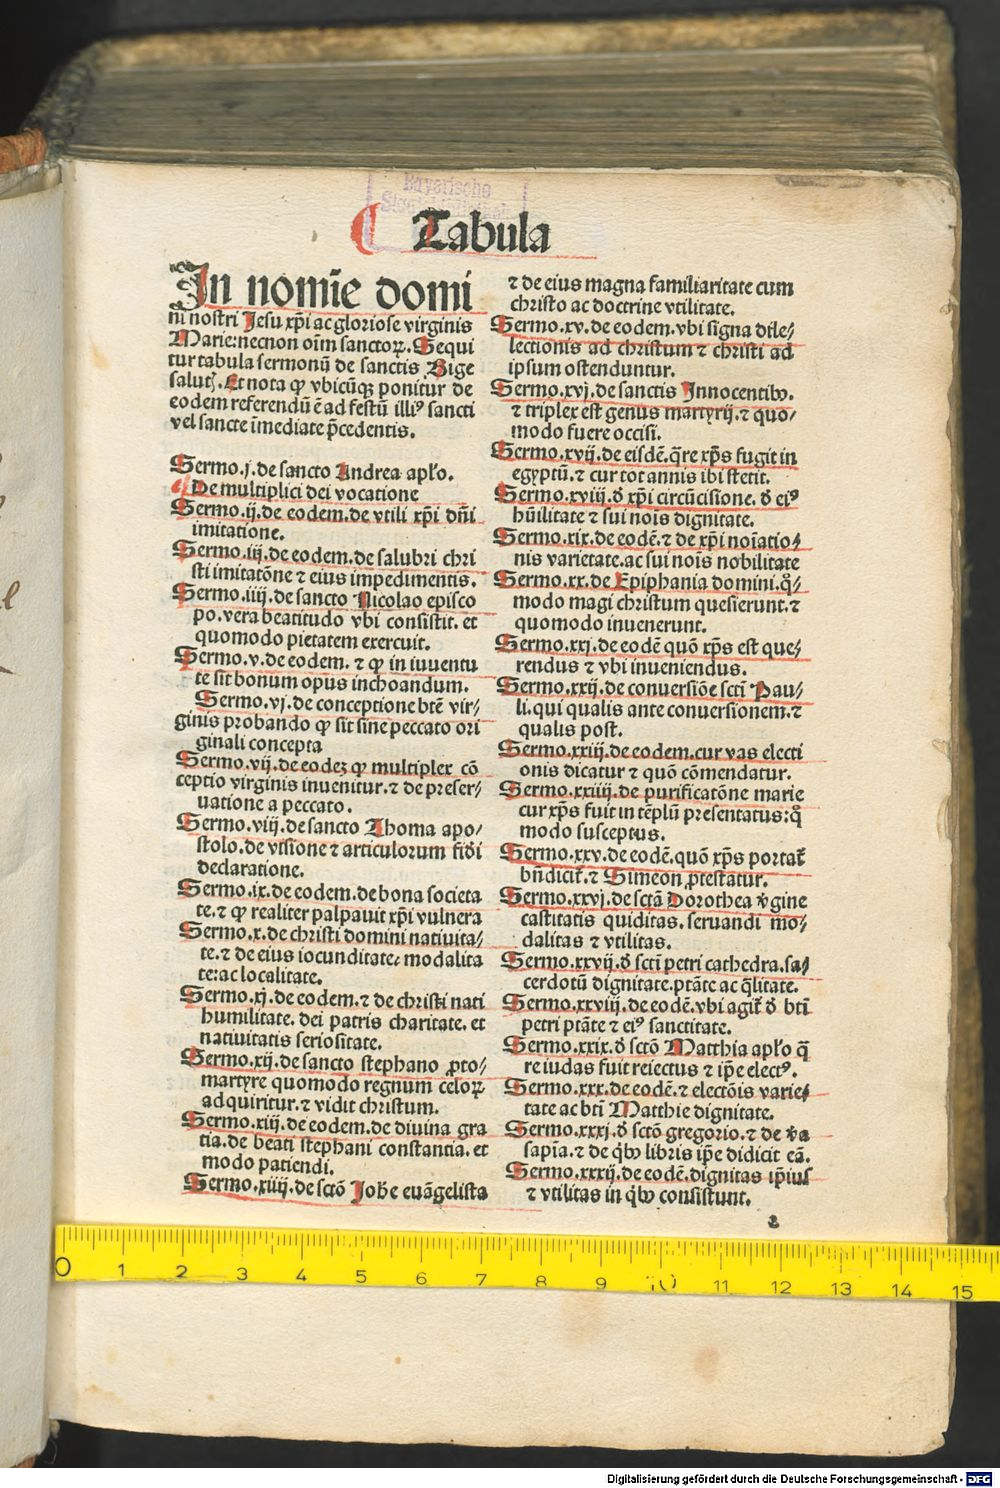 Bayerische
Tabula
In nomīe domi
ni nostri Jesu xp̄i ac gloriose virginis
Marie: necnon oīm sanctoꝝ. Sequi
tur tabula sermonū de sanctis Bige
salutꝭ. Et nota ꝙ vbicūqꝫ ponitur de
eodem referendū ē ad festū illiꝰ sancti
vel sancte īmediate p̄cedentis.
Sermo.j.de sancto Andrea apl̄o.
De multiplici dei vocatione
Sermo.ij.de eodem.de vtili xp̄i dn̄i
imitatione.
Sermo.iij.de eodem.de salubri chri
sti imitatōne ⁊ eius impedimentis.
Sermo.iiij.de sancto Nicolao episco
po.vera beatitudo vbi consistit.et
quomodo pietatem exercuit.
Sermo.v.de eodem. ⁊ ꝙ in iuuentu
te sit bonum opus inchoandum.
Sermo.vj.de conceptione btē vir⸗
ginis probando ꝙ sit sine peccato ori
ginali concepta
Sermo.vij.de eodeꝫ ꝙ multiplex cō
ceptio virginis inuenitur.⁊ de preser⸗
uatione a peccato.
Sermo.viij.de sancto Thoma apo⸗
stolo.de visione ⁊ articulorum fidei
declaratione.
Sermo.ix.de eodem.de bona societa
te.⁊ ꝙ realiter palpauit xp̄i vulnera
Sermo.x.de christi domini natiuita⸗
te.⁊ de eius iocunditate: modalita
te:ac localitate.
Sermo.xj.de eodem.⁊ de christi nati
humilitate. dei patris charitate. et
natiuitatis seriositate.
Sermo.xij.de sancto stephano ꝓto⸗
martyre quomodo regnum celoꝝ
adquiritur.⁊ vidit christum.
Sermo.xiij.de eodem.de diuina gra
tia.de beati stephani constantia.et
modo patiendi.
Sermo.xiiij.de sctō Joh̄e euāgelista
⁊ de eius magna familiaritate cum
christo ac doctrine vtilitate.
Sermo.xv.de eodem.vbi signa dile⸗
lectionis ad christum ⁊ christi ad
ipsum ostenduntur.
Sermo.xvj.de sanctis Innocentibꝰ.
⁊ triplex est genus martyrij.⁊ quo⸗
modo fuere occisi.
Sermo.xvij.de eisdē.q̄re xp̄s fugit in
egyptū.⁊ cur tot annis ibi stetit.
Sermo.xviij.ð xp̄i circūcisione. ð eiꝰ
hūilitate ⁊ sui noīs dignitate.
Sermo.xix.de eodē.⁊ de xp̄i noīatio⸗
nis varietate.ac sui noīs nobilitate
Sermo.xx.de Epiphania domini.q̊⸗
modo magi christum quesierunt.⁊
quomodo inuenerunt.
Sermo.xxj.de eodē quō xp̄s est que⸗
rendus ⁊ vbi inueniendus.
Sermo.xxij.de conuersiōe sctī Pau⸗
li.qui qualis ante conuersionem.⁊
qualis post.
Sermo.xxiij.de eodem.cur vas electi
onis dicatur ⁊ quō cōmendatur.
Sermo.xxiiij.de purificatōne marie
cur xp̄s fuit in tēplū presentatus:q̊
modo susceptus.
Sermo.xxv.de eodē.quō xp̄s portat̄
bn̄dicit̄.⁊ Simeon ꝓtestatur.
Sermo.xxvj.de sctā Dorothea v̄gine
castitatis quiditas.seruandi mo⸗
dalitas ⁊ vtilitas.
Sermo.xxvij.ð sctī petri cathedra.sa⸗
cerdotū dignitate.ptāte ac q̄litate.
Sermo.xxviij.de eodē.vbi agit̄ ð btī
petri ptāte ⁊ eiꝰ sanctitate.
Sermo.xxix.ð sctō Matthia apl̄o q̄
re iudas fuit reiectus ⁊ ip̄e electꝰ.
Sermo.xxx.de eodē.⁊ electōis varie⸗
tate ac btī Matthie dignitate.
Sermo.xxxj.ð sctō gregorio.⁊ de v̄a
sapīa.⁊ de q̇bꝰ libris ip̄e didicit eā.
Sermo.xxxij.de eodē.dignitas ip̄ius
⁊ vtilitas in q̇bꝰ consistunt.
2
0 1 2 3 4 5 6 7 8 9 10 11 12 13 14 15
Digitalisierung gefördert durch die Deutsche Forschungsgemeinschaft - DFG